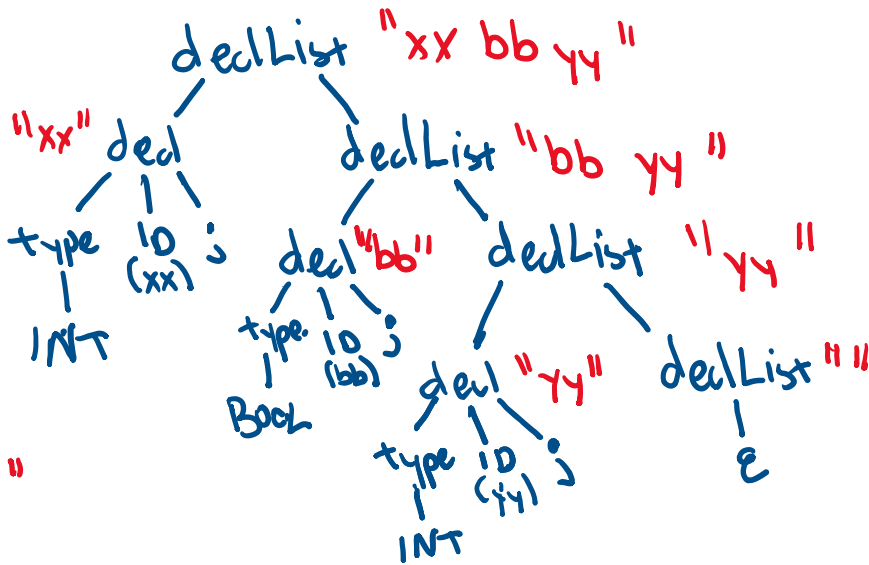 declList "xx bb yy"
"xx" decl declList "bb yy"
type ID ; decl "bb" declList "yy"
(xx)
INT type ID ; decl "yy" declList ""
(bb)
BOOL type ID ; ε
"
(yy)
INT